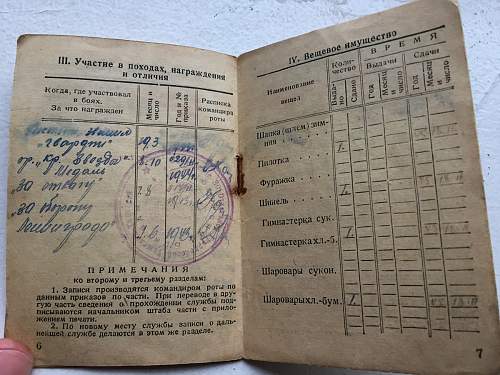 III. Участие в походах, награждения
и отличия
Когда, где участвовал
в боях.
За что награжден
Месяц и
число
Год и №
приказа
Расписка
командира
роты
"гвардии"
19.3
ор. "Кр. Звезда"
8.10
1944г.
Медаль
"За отвагу"
2.8
"За оборону
Ленинграда"
3.6
ПРИМЕЧАНИЯ
ко второму и третьему разделам:
1. Записи производятся командиром роты по
данным приказов по части. При переводе в дру-
гую часть сведения о прохождении службы под-
писываются начальником штаба части с при-
ложением печати.
2. По новому месту службы записи о даль-
нейшей службе делаются в этом же разделе.
6
IV. Вещевое имущество
Наименование
вещей
Коли-
чество
ВРЕМЯ
Выдачи
Сдачи
Выда-
но
Сдано
Год
Месяц
и
число
Год
Месяц
и число
Шапка (шлем) зим-
няя
Пилотка
Фуражка
Шинель
Гимнастерка сук.
Гимнастерка х.л.-б.
Шаровары сукон.
Шаровары хл.-бум.
7